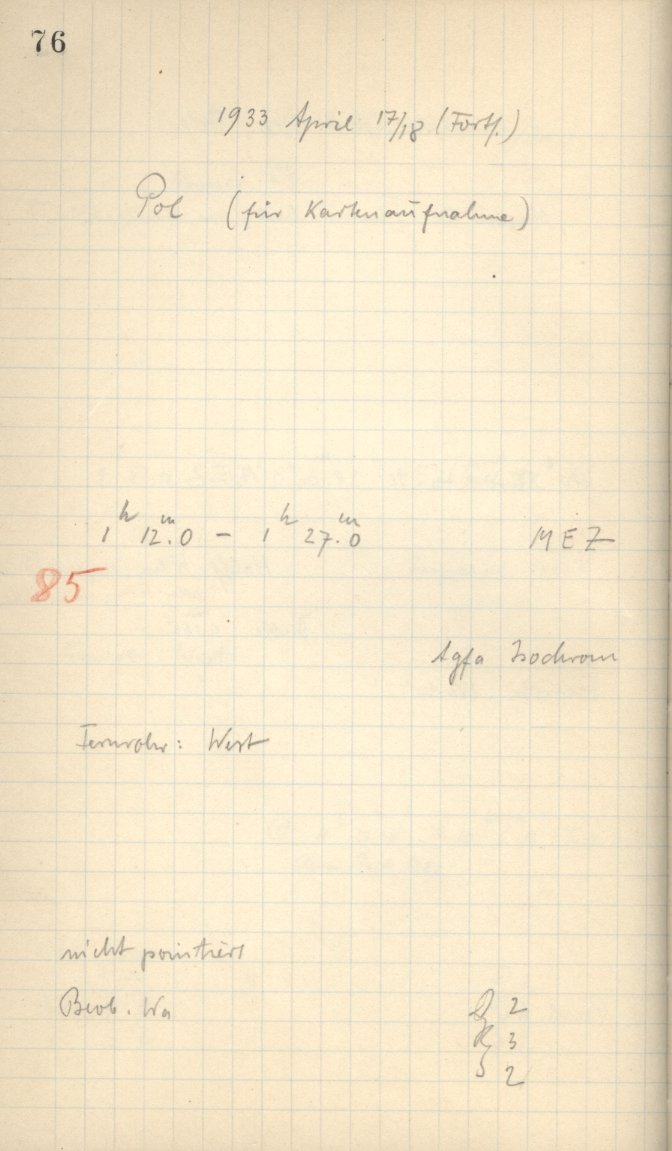 76
1933 April 17/18 (Forts.)
Pol (für Kartenaufnahme)
1h 12m.0 – 1h 27m.0 MEZ
85
Agfa Isochrom
Fernrohr: West
nicht pointiert
Beob. Wa
2
R 3
S 2